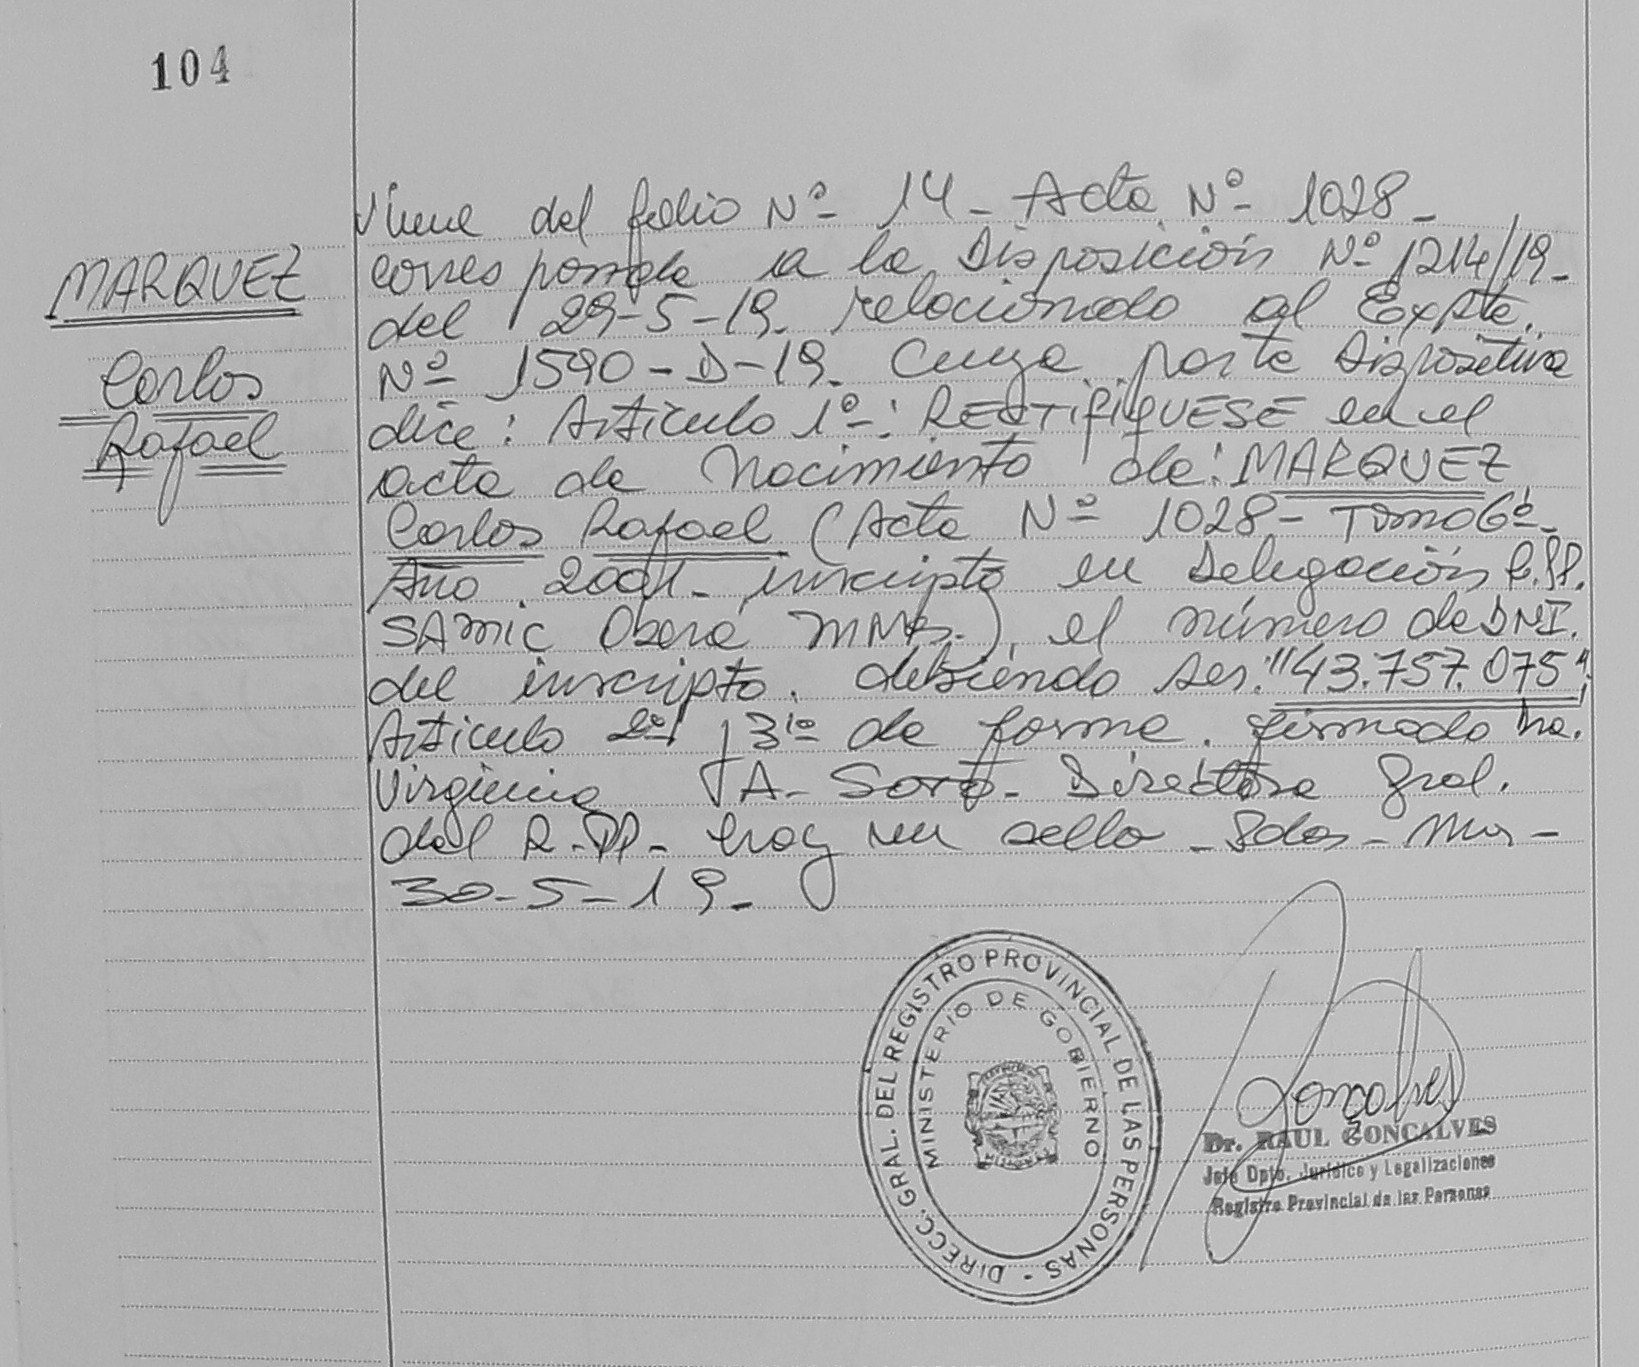 104
MARQUEZ
Carlos
Rafael
Viene del folio Nº 14 - Acta Nº 1028 -
corresponde a la Disposición Nº 1214/19 -
del 29-5-19. relacionado al Expte.
Nº 1590-D-19. Cuya parte Dispositiva
dice: Artículo 1º: RECTIFIQUESE en el
acta de Nacimiento de: MARQUEZ
Carlos Rafael (Acta Nº 1028 - Tomo 6º -
Año 2001 - inscripto en Delegación
SAMIC Oberá Mnes.) el número de DNI.
del inscripto. debiendo ser: "43.757.075",
Artículo 2º y 3º de forma. firmado
Virginia A. Soro - Directora Gral.
del R.PP. hay un sello - Pdas - Mns -
30-5-19.
DIRECC. GRAL. DEL REGISTRO PROVINCIAL DE LAS PERSONAS -
MINISTERIO DE GOBIERNO
MISIONES
Goncalves
Dr. RAUL GONCALVES
Jefe Dpto. Jurídico y Legalizaciones
Registro Provincial de las Personas